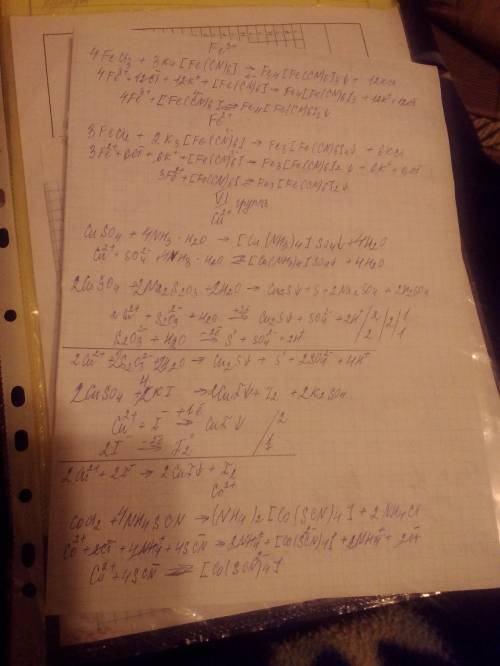 Fe³⁺
4FeCl₃ + 3K₄[Fe(CN)₆] → Fe₄[Fe(CN)₆]₃↓ + 12KCl
4Fe³⁺ + 12Cl⁻ + 12K⁺ + [Fe(CN)₆] → Fe₄[Fe(CN)₆]₃ + 12K⁺ + 12Cl⁻
4Fe³⁺ + [Fe(CN)₆] ⇄ Fe₄[Fe(CN)₆]₃↓
Fe²⁺
3FeCl₂ + 2K₃[Fe(CN)₆] → Fe₃[Fe(CN)₆]₂↓ + 6KCl
3Fe²⁺ + 6Cl⁻ + 6K⁺ + [Fe(CN)₆] → Fe₃[Fe(CN)₆]₂↓ + 6K⁺ + 6Cl⁻
3Fe²⁺ + [Fe(CN)₆] ⇄ Fe₃[Fe(CN)₆]₂↓
VI группа
Cu²⁺
CuSO₄ + 4NH₃·H₂O → [Cu(NH₃)₄]SO₄↓ + 4H₂O
Cu²⁺ + SO₄²⁻ + 4NH₃·H₂O ⇄ [Cu(NH₃)₄]SO₄↓ + 4H₂O
2CuSO₄ + 2Na₂S₂O₃ + 2H₂O → Cu₂S↓ + S + 2Na₂SO₄ + 2H₂SO₄
2Cu²⁺ + S₂O₃²⁻ + H₂O → Cu₂S↓ + SO₄²⁻ + 2H⁺ /2/2/1
S₂O₃²⁻ + H₂O → S° + SO₄²⁻ + 2H⁺ 2 2 1
2Cu²⁺ + 2S₂O₃²⁻ + 2H₂O → Cu₂S↓ + S° + 2SO₄²⁻ + 4H⁺
2CuSO₄ + 4KI → 2CuI↓ + I₂ + 2K₂SO₄
Cu²⁺ + I⁻ +1ē → CuI↓ /2
2I⁻ −2ē → I₂° /1
2Cu²⁺ + 2I⁻ → 2CuI↓ + I₂
Co²⁺
CoCl₂ + 4NH₄SCN → (NH₄)₂[Co(SCN)₄] + 2NH₄Cl
Co²⁺ + 2Cl⁻ + 4NH₄⁺ + 4SCN⁻ → 2NH₄⁺ + [Co(SCN)₄]²⁻ + 2NH₄⁺ + 2Cl⁻
Co²⁺ + 4SCN⁻ ⇄ [Co(SCN)₄]²⁻